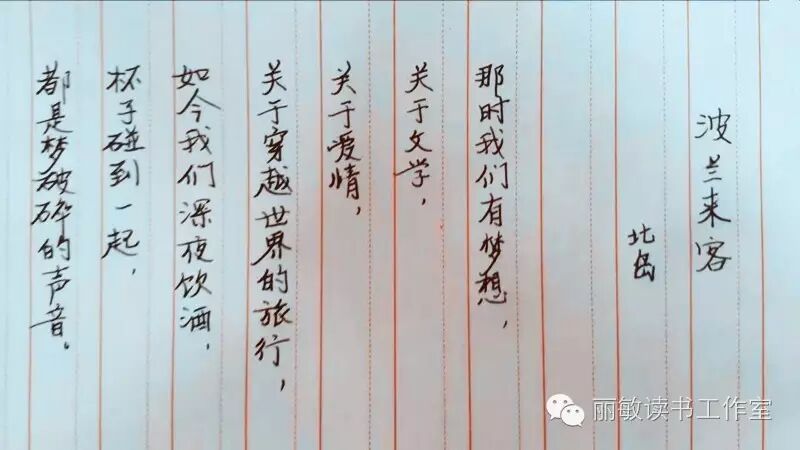 波兰来客
北岛
那时我们有梦想，
关于文学，
关于爱情，
关于穿越世界的旅行，
如今我们深夜饮酒，
杯子碰到一起，
都是梦破碎的声音。
丽敏读书工作室